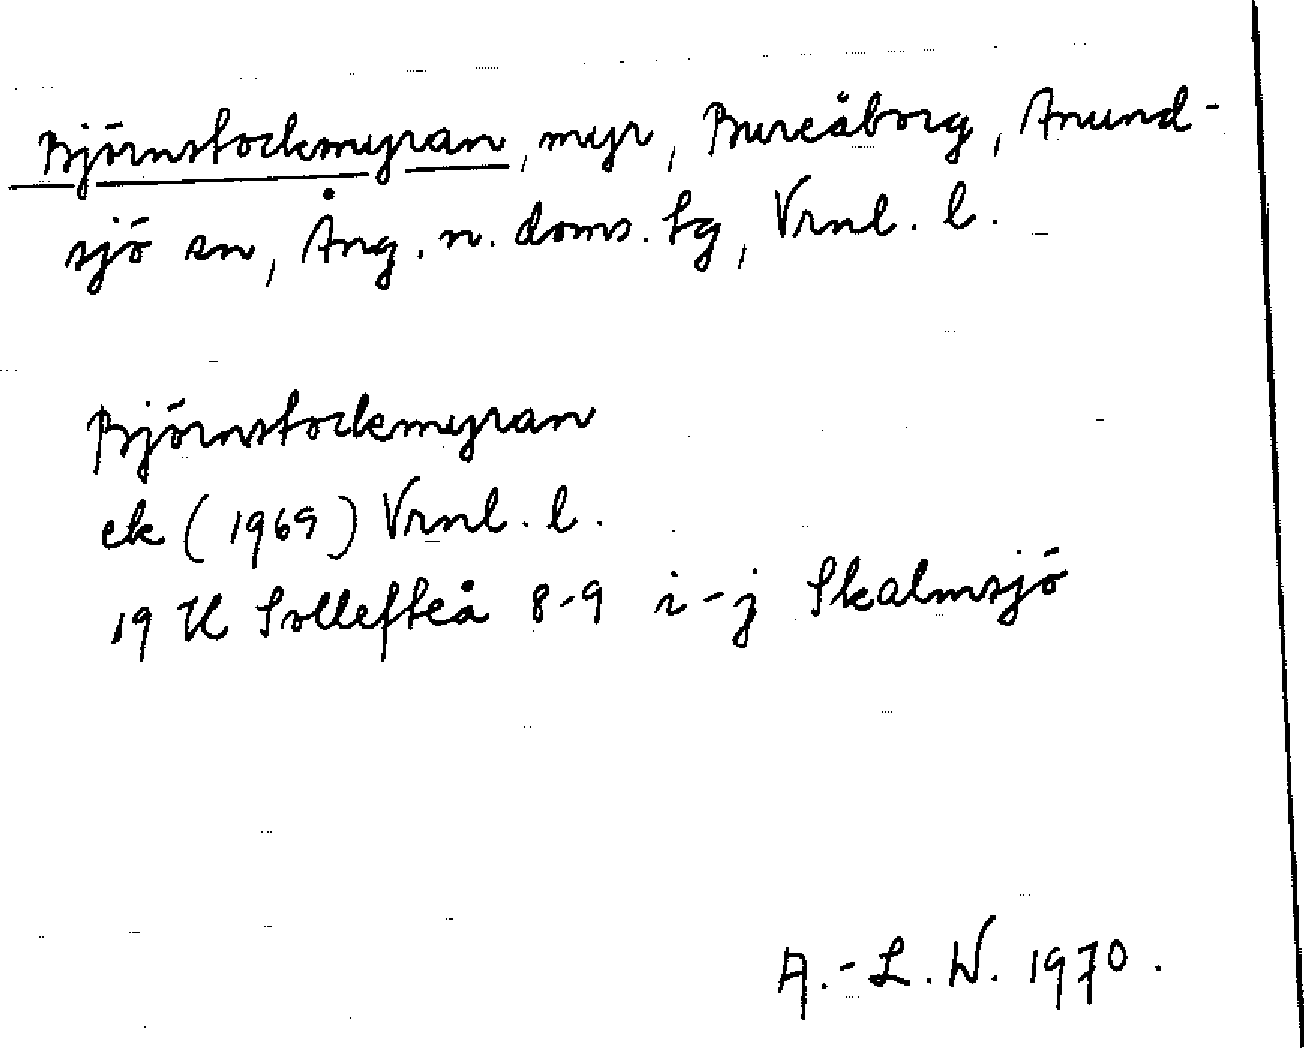 Björnstockmyran, myr, Bureåborg, Anund-
sjö sn, Ång. n. doms. lg, Vrnl. l.
Björnstockmyran
ek (1969) Vrnl. l.
19 H Sollefteå 8-9 i-j Skalmsjö
A.-L. W. 1970.